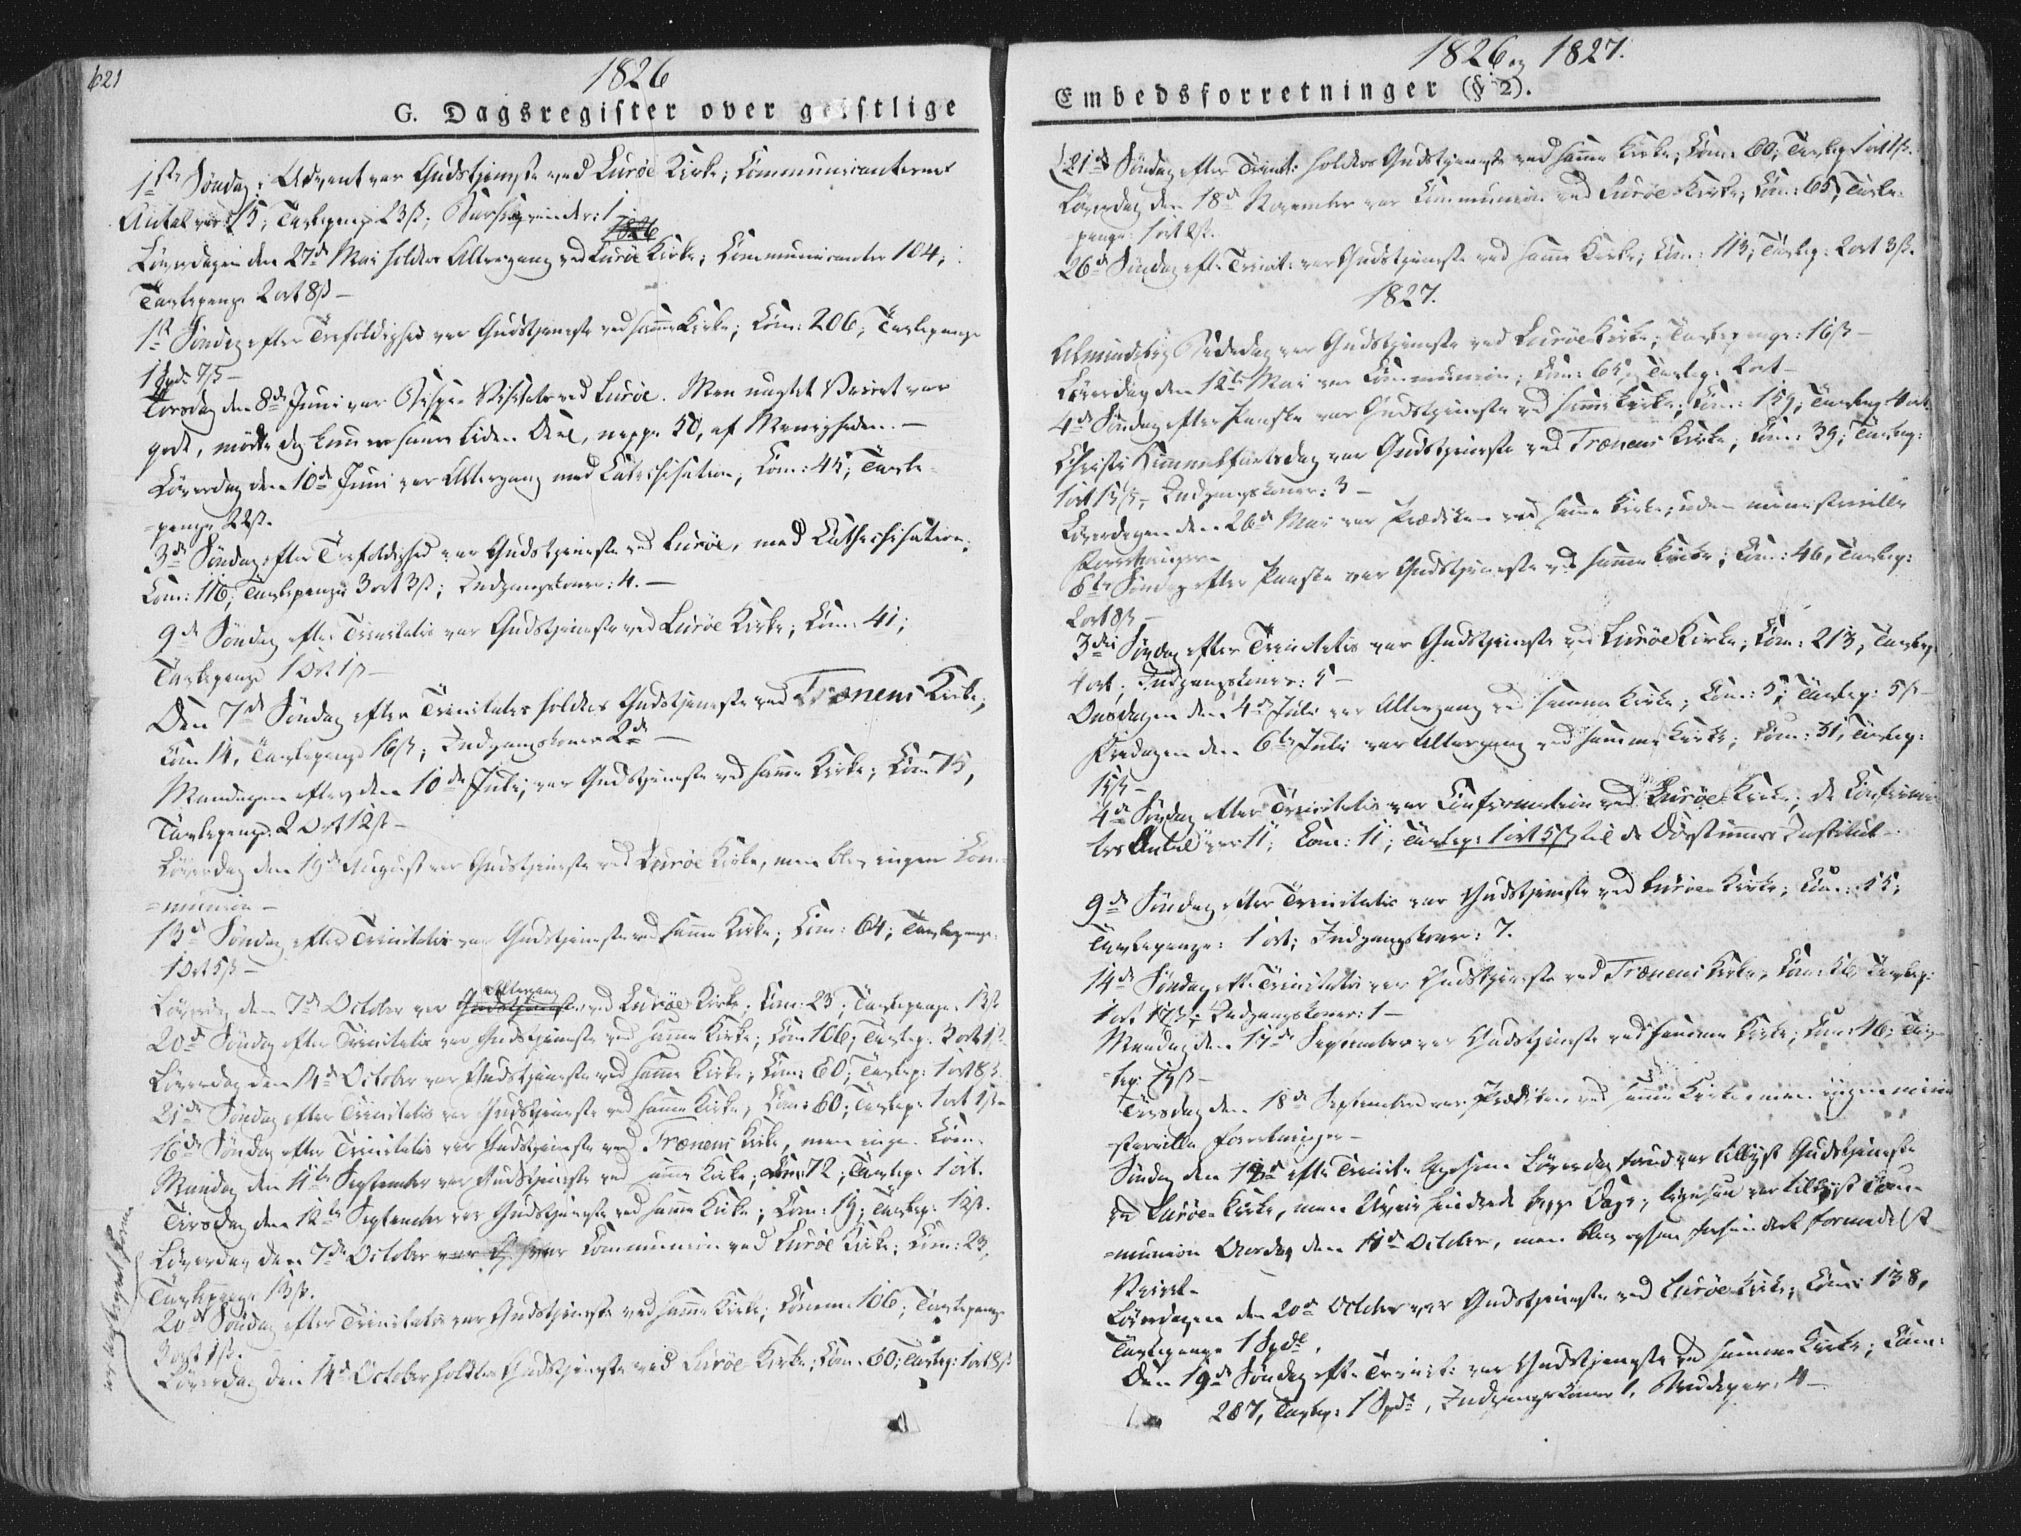 621
1826
G. Dagsregister over geistlige
1ste Søndag i Advent var Gudstjeneste ved Lurøe Kirke; Communicanternes
Antal var 15; Tavlepenge 23 ß;
1826
Løverdagen den 27de Mai holdtes Altergang ved Lurøe Kirke; Communicanter 104;
Tavlepenge 2 ort 8 ß –
1ste Søndag efter Trefoldighed var Gudstjeneste ved samme Kirke; Com: 206; Tavlepenge
1 Spd. 7 ß –
Torsdag den 8de Juni var Bispe Visitats ved Lurøe. Men uagtet Veiret var
godt, mødte dog kun en saare liden Deel, neppe 50, af Menigheden. –
Løverdag den 10de Juni var Altergang med Catechisation; Com: 45; Tavle-
=penge 22 ß.
3de Søndag efter Trefoldighed var Gudstjeneste ved Lurøe, med Cathechisation;
Com: 116; Tavlepenge 3 ort 3 ß; Indgangskoner: 4. –
9de Søndag efter Trinitatis var Gudstjeneste ved Lurøe Kirke; Com: 41;
Tavlepenge 1 Ort 1 ß –
Den 7de Søndag efter Trinitatis holdtes Gudstjeneste ved Trænens Kirke;
Com: 14, Tavlepenge 16 ß; Indgangskoner 2de –
Mandagen efter, den 10de Juli, var Gudstjeneste ved samme Kirke; Com 75,
Tavlepenge 2 Ort 12 ß –
Løverdag den 19de August var Gudstjeneste ved Lurøe Kirke, men blev ingen Com-
=munion –
13de Søndag efter Trinitatis var Gudstjeneste ved samme Kirke; Com: 64; Tavlepenge:
1 Ort 5 ß –
Altergang
Løverdag den 7de October var Gudstjeneste ved Lurøe Kirke; Com: 23; Tavlepenge 13 ß
20de Søndag efter Trinitatis var Gudstjeneste ved samme Kirke; Com 106; Tavlep: 3 ort 1 ß
Løverdag den 14de October var Gudstjeneste ved samme Kirke; Com: 60; Tavlep: 1 ort 8 ß.
21de Søndag efter Trinitatis var Gudstjeneste ved samme Kirke; Com: 60; Tavlep: 1 ort 1 ß –
16de Søndag efter Trinitatis var Gudstjeneste ved Trænens Kirke, men ingen Com.
Mandag den 11te September var Gudstjeneste ved samme Kirke; Com: 72, Tavlep: 1 ort.
Tirsdag den 12te September var Gudstjeneste ved samme Kirke; Com: 19; Tavlep: 12 ß.
Løverdag den 7de October var Communion ved Lurøe Kirke; Com: 23,
Tavlepenge 13 ß.
20de Søndag efter Trinitatis var Gudstjeneste ved samme Kirke; Comm: 106; Tavlepenge
3 ort 1 ß.
Løverdag den 14de October holdtes Gudstjeneste ved Lurøe Kirke; Com: 60; Tavlep: 1 ort 8 ß
1826 og 1827.
Embedsforretninger (§ 2).
(21de Søndag efter Trinit: holdtes Gudstjeneste ved samme Kirke; Com: 60; Tavlep 1 ort 1 ß.
Løverdag den 18de November var Communion ved Lurøe Kirke; Com: 65; Tavle-
penge: 1 ort 2 ß.
26de Søndag eft: Trinit: var Gudstjeneste ved samme Kirke; Com: 113; Tavlep: 2 ort 3 ß.
1827.
Almindelig Bededag var Gudstjeneste ved Lurøe Kirke; Tavlepenge: 16 ß –
Løverdag den 12te Mai var Communion; Com: 62; Tavlep: 2 ort –
4de Søndag efter Paaske var Gudstjeneste ved samme Kirke; Com: 159; Tavlep 4 ort
Christi Himmelfartsdag var Gudstjeneste ved Trænens Kirke; Com: 39; Tavlep:
1 ort 13 ß; Indgangskoner: 3 –
Løverdagen den 26de Mai var Prædiken ved samme Kirke, uden ministerielle
Forretninger –
6te Søndag efter Paaske var Gudstjeneste ved samme Kirke; Com: 46, Tavlep:
2 ort 8 ß –
3die Søndag efter Trinitatis var Gudstjeneste ved Lurøe Kirke; Com: 213, Tavlep:
4 ort; Indgangskoner: 5 –
Onsdagen den 4de Juli var Altergang ved samme Kirke; Com: 5; Tavlep: 5 ß –
Fredagen den 6te Juli var Altergang ved samme Kirke; Com: 31, Tavlep:
15 ß –
4de Søndag efter Trinitatis var Confirmation ved Lurøe Kirke; de Confirme-
tes Antal var 11; Com: 11; Tavlep: 1 ort 5 ß, til de Døvstummes Institut –
9de Søndag efter Trinitatis var Gudstjeneste ved Lurøe Kirke; Com: 55;
Tavlepenge: 1 ort; Indgangskoner: 7.
14de Søndag eft: Trinitatis var Gudstjeneste ved Trænens Kirke, Tavlep:
1 ort 17 ß; Indgangskoner: 1 –
Mandag den 17de September var Gudstjeneste ved samme Kirke; Com: 46; Tav-
lep: 19 ß –
Tirsdag den 18de September var Prædiken ved samme Kirke, men ingen mini-
=sterielle Forretninger –
Søndag den efter Trinit: ligesom Løverdag forud var tillyst Gudstjeneste
ved Lurøe Kirke, men Uveir hindrede begge Dage; ligesaa var tillyst Com-
=munion den October, men blev ogsaa forhindret formedelst
Veiret –
Løverdagen den 20de October var Gudstjeneste ved Lurøe Kirke; Com: 138,
Tavlepenge 1 Spdl.
Den 19de Søndag eft: Trinit: var Gudstjeneste ved samme Kirke; Com:
287, Tavlep: 1 Spd, Indgangskoner 1, Brudepar: 4 –